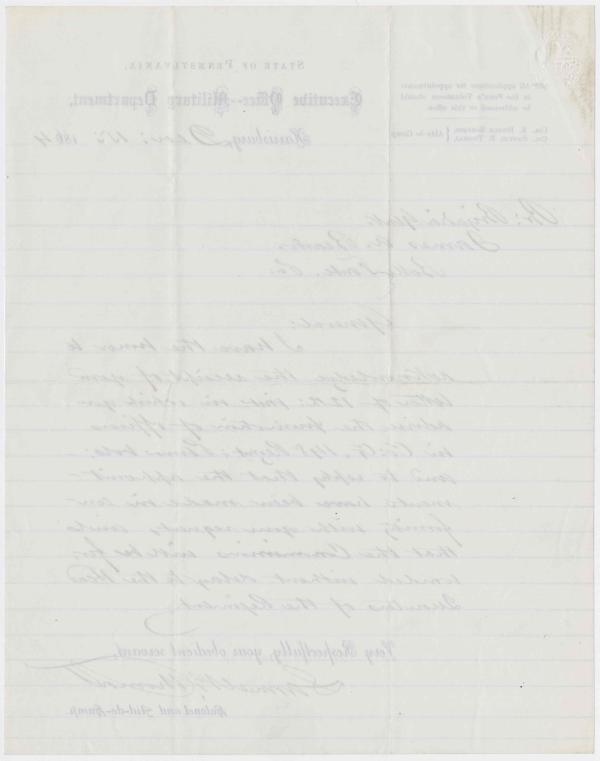 STATE OF PENNSYLVANIA,
Executive Office--Military Department,
Harrisburg, Decr: 15: 1864
All applications for appointment
in the Penn'a Volunteers should
be addressed to this office.
Br: Brig: Genl:
James A. Beaver
Bellefonte, Pa:
General:
I have the honor to
acknowledge the receipt of your
letter of 12th: inst: in which you
advise the promotion of officers
in Co: 148 Regt: Penna: Vols:
and to reply that the appoint-
ments have been made in con-
formity with your request, and
that the Commissions will be for-
warded without delay to the Head
Quarters of the Regiment.
Very Respectfully, your obedient servant,
Samuel B. Thomas
Colonel and Aid-de-Camp.